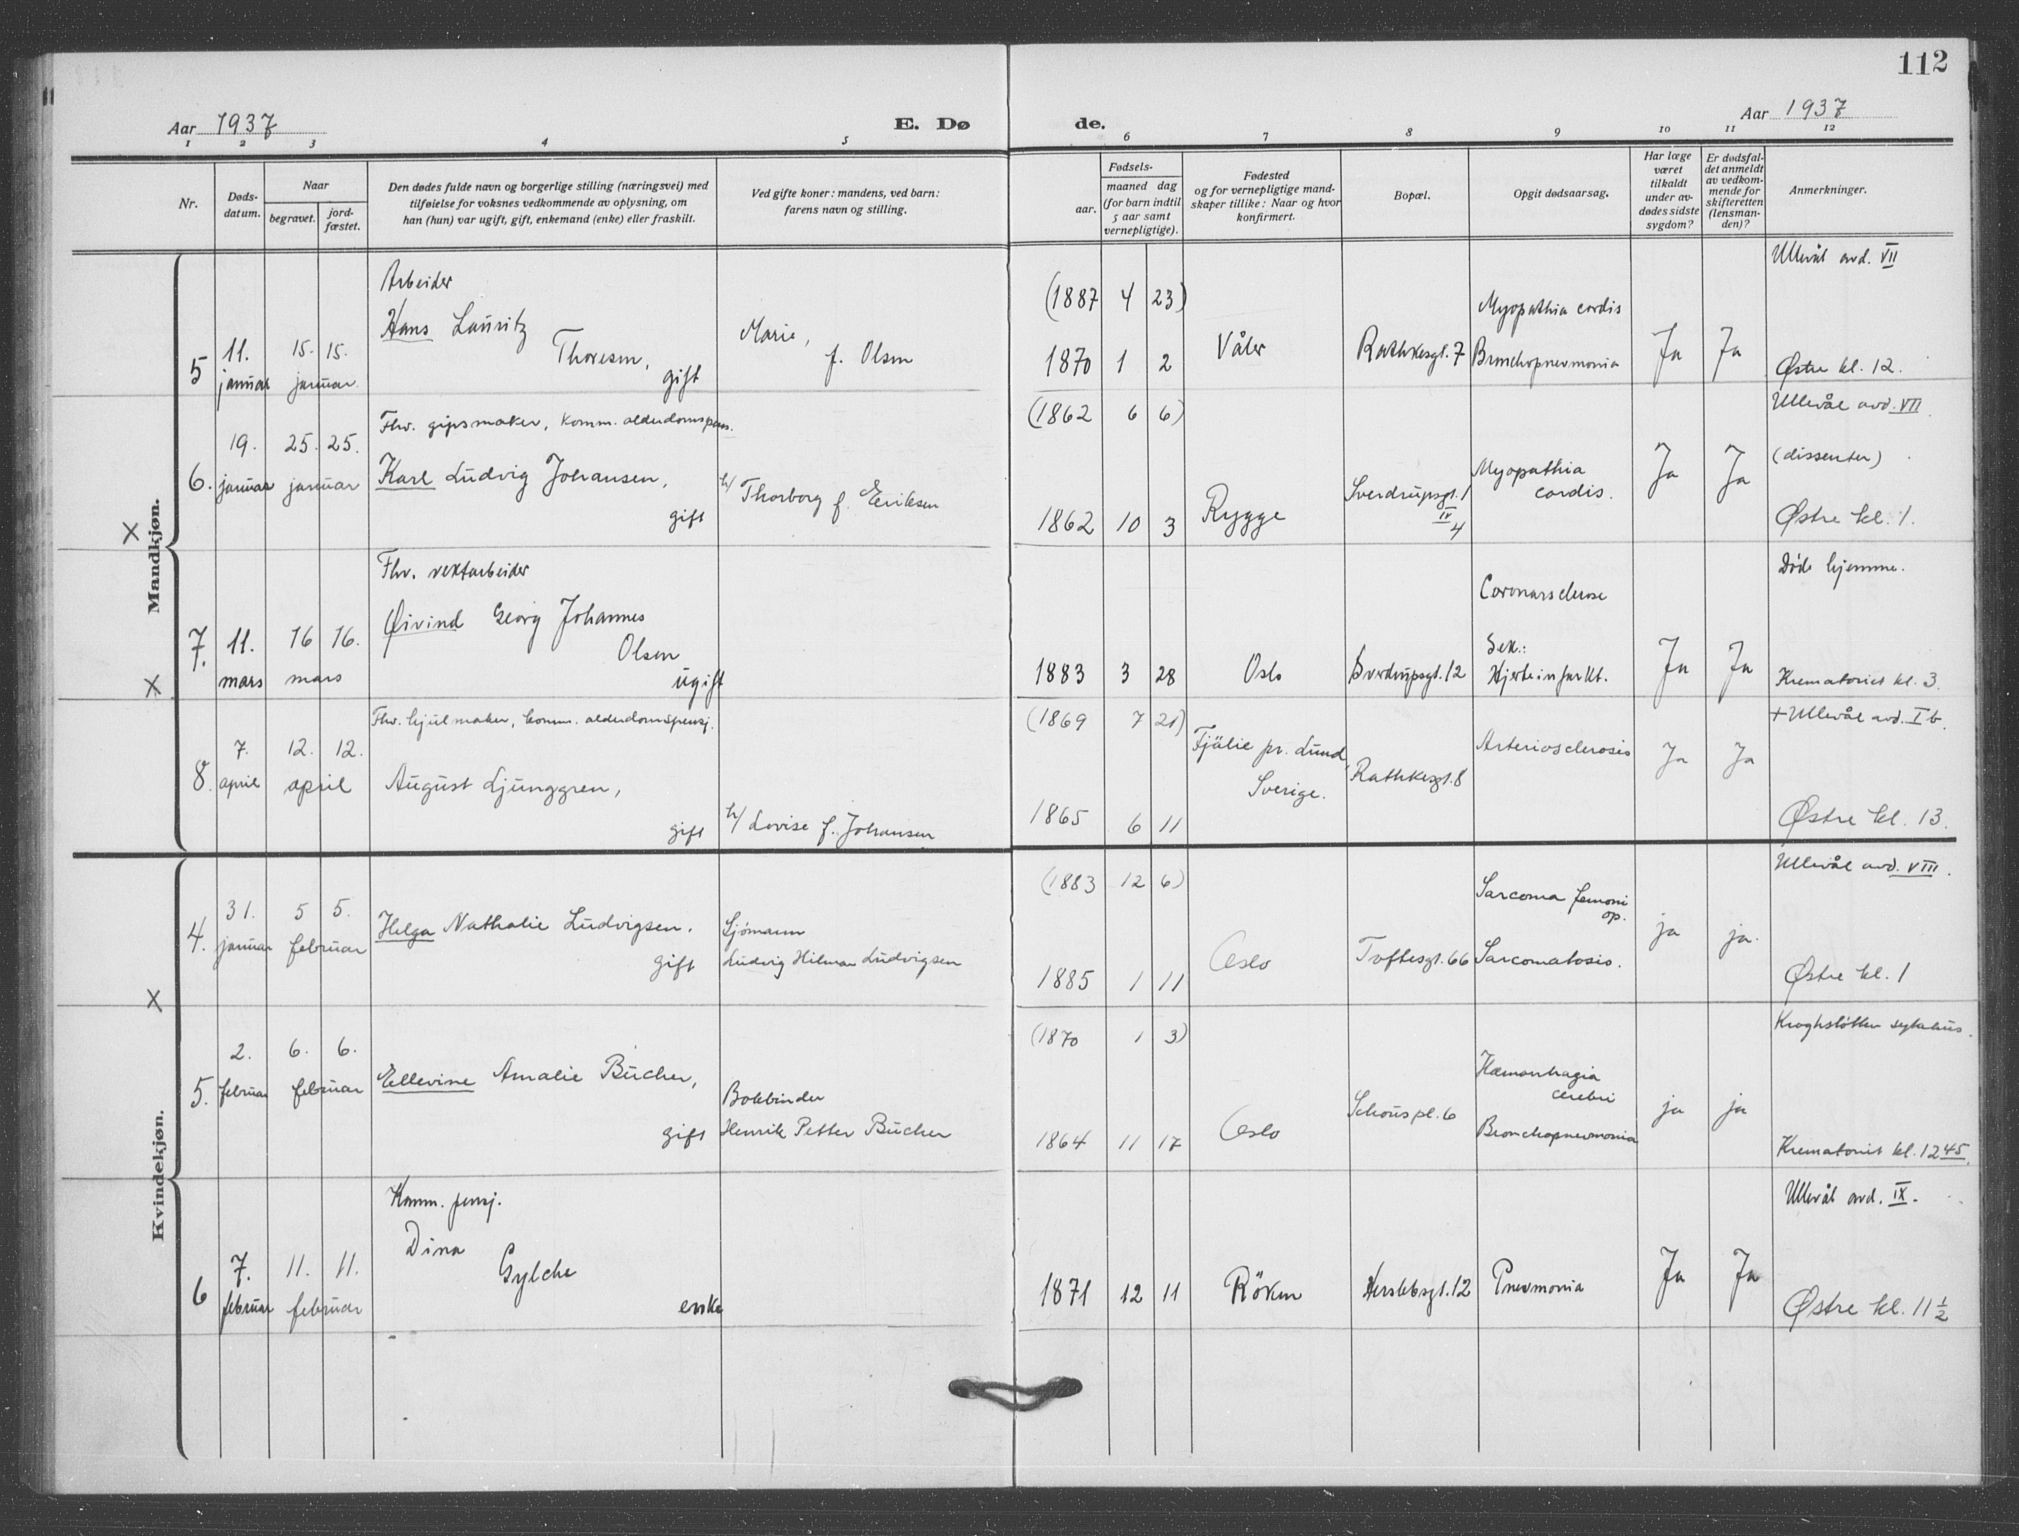 112
Aar 1937
E. Dø
de.
Aar 1937
1 2 3 4 5 6 7 8 9 10 11 12
Nr.
Døds-
datum.
Naar
begravet.
jord-
fæstet.
Den dødes fulde navn og borgerlige stilling (næringsvei) med
tilføielse for voksnes vedkommende av oplysning, om
han (hun) var ugift, gift, enkemand (enke) eller fraskilt.
Ved gifte koner: mandens, ved barn:
farens navn og stilling.
Fødsels-
aar.
maaned dag
(for barn indtil
5 aar samt
vernepligtige).
Fødested
og for vernepligtige mand-
skaper tillike: Naar og hvor
konfirmert.
Bopæl.
Opgit dødsaarsag.
Har læge
været
tilkaldt
under av-
dødes sidste
sygdom?
Er dødsfal-
det anmeldt
av vedkom-
mende for
skifteretten
(lensman-
den)?
Anmerkninger.
Mandkjøn.
5
11.
januar
15. 15.
januar
Arbeider
Hans Lauritz
Thoresen,
gift
Marie,
f. Olsen
(1887 4 23)
1870 1 2
Våler
Rathkesgt. 7
Myopathia cordis
Bronchopnevmonia
Ja
Ja
Ullevål avd. VII
Østre kl. 12.
6.
19.
januar
25. 25.
januar
Fhv. gipsmaker, komm. alderdomspens.
Karl Ludvig Johansen,
gift
h/ Thorborg f. Eriksen
(1862 6 6)
1862 10 3
Rygge
Sverdrupsgt. 1
IV
4
Myopathia
cordis.
Ja
Ja
Ullevål avd. VII
(dissenter)
Østre kl. 1.
7.
11.
mars
16 16.
mars
Fhv. vektarbeider
Øivind Georg Johannes
Olsen
ugift
1883 3 28
Oslo
Sverdrupsgt. 12
Coronarsclerose
Sek.:
Hjerteinfarkt.
Ja
Ja
Døde hjemme.
Krematoriet kl. 3.
8.
7.
april
12. 12.
april
Fhv. hjulmaker, komm. alderdomspensj.
August Ljunggren,
gift
h/ Lovise f. Johansen
(1869 7 21)
1865 6 11
Fjälie pr. Lund,
Sverige.
Rathkesgt. 8
Arteriosclerosis
Ja
Ja
+ Ullevål avd. I b.
Østre kl. 13.
Kvindekjøn.
4.
31.
januar
5 5.
februar
Helga Nathalie Ludvigsen.
gift
Sjømann
Ludvig Hilmar Ludvigsen
(1883 12 6)
1885 1 11
Oslo
Toftesgt. 66
Sarcoma femoris
op.
Sarcomatosis.
ja
ja.
Ullevål avd. VIII.
Østre kl. 1
5.
2.
februar
6. 6.
februar
Ellevine Amalie Bücher,
gift
Bokbinder
Henrik Petter Bücher
(1870 1 3)
1864 11 17
Oslo
Schous pl. 6
Hæmorrhagia
cerebri
Bronchopnevmonia
ja
ja
Kroghstøtten sykehus.
Krematoriet kl. 12 45.
6
7.
februar
11. 11.
februar
Komm. pensj.
Dina
Gylche
enke
1871 12 11
Röken
Herslebsgt. 12
Pnevmonia
Ja
Ja
Ullevål avd. IX.
Østre kl. 11 1/2